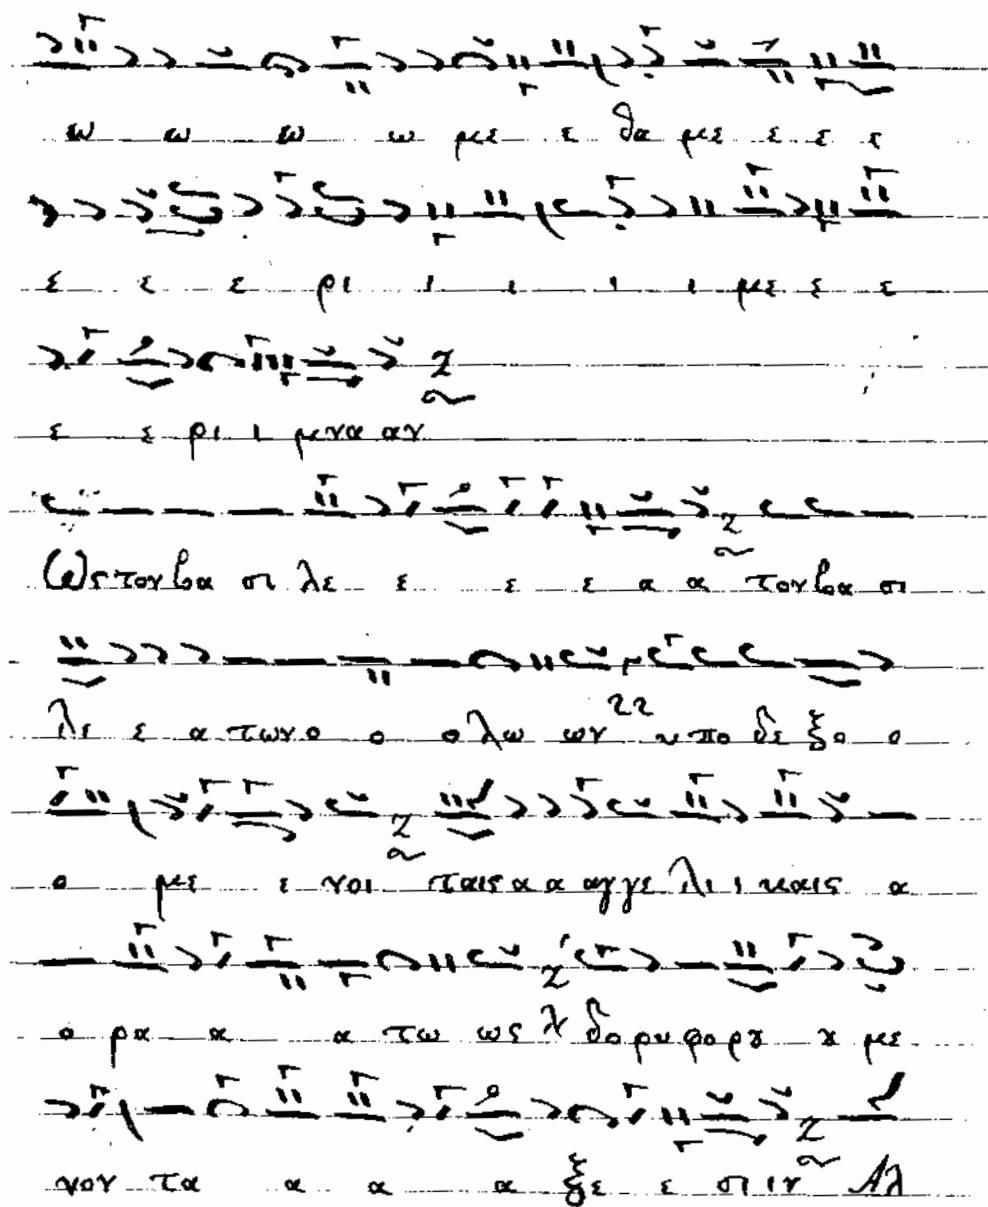 ω ω ω ω με ε θα με ε ε ε
ε ε ε ρι ι ι ι ι με ε ε
ε ε ρι ι μνα αν
Ως τον βα σι λε ε ε ε α α τον βα σι
λε ε α των ο ο ο λω ων υ πο δε ξο ο
ο με ε νοι ταις α α αγγε λι ι καις α
ο ρα α α τω ως δο ρυ φο ρȣ ȣ με
νον τα α α α ξε ε σιν Αλ